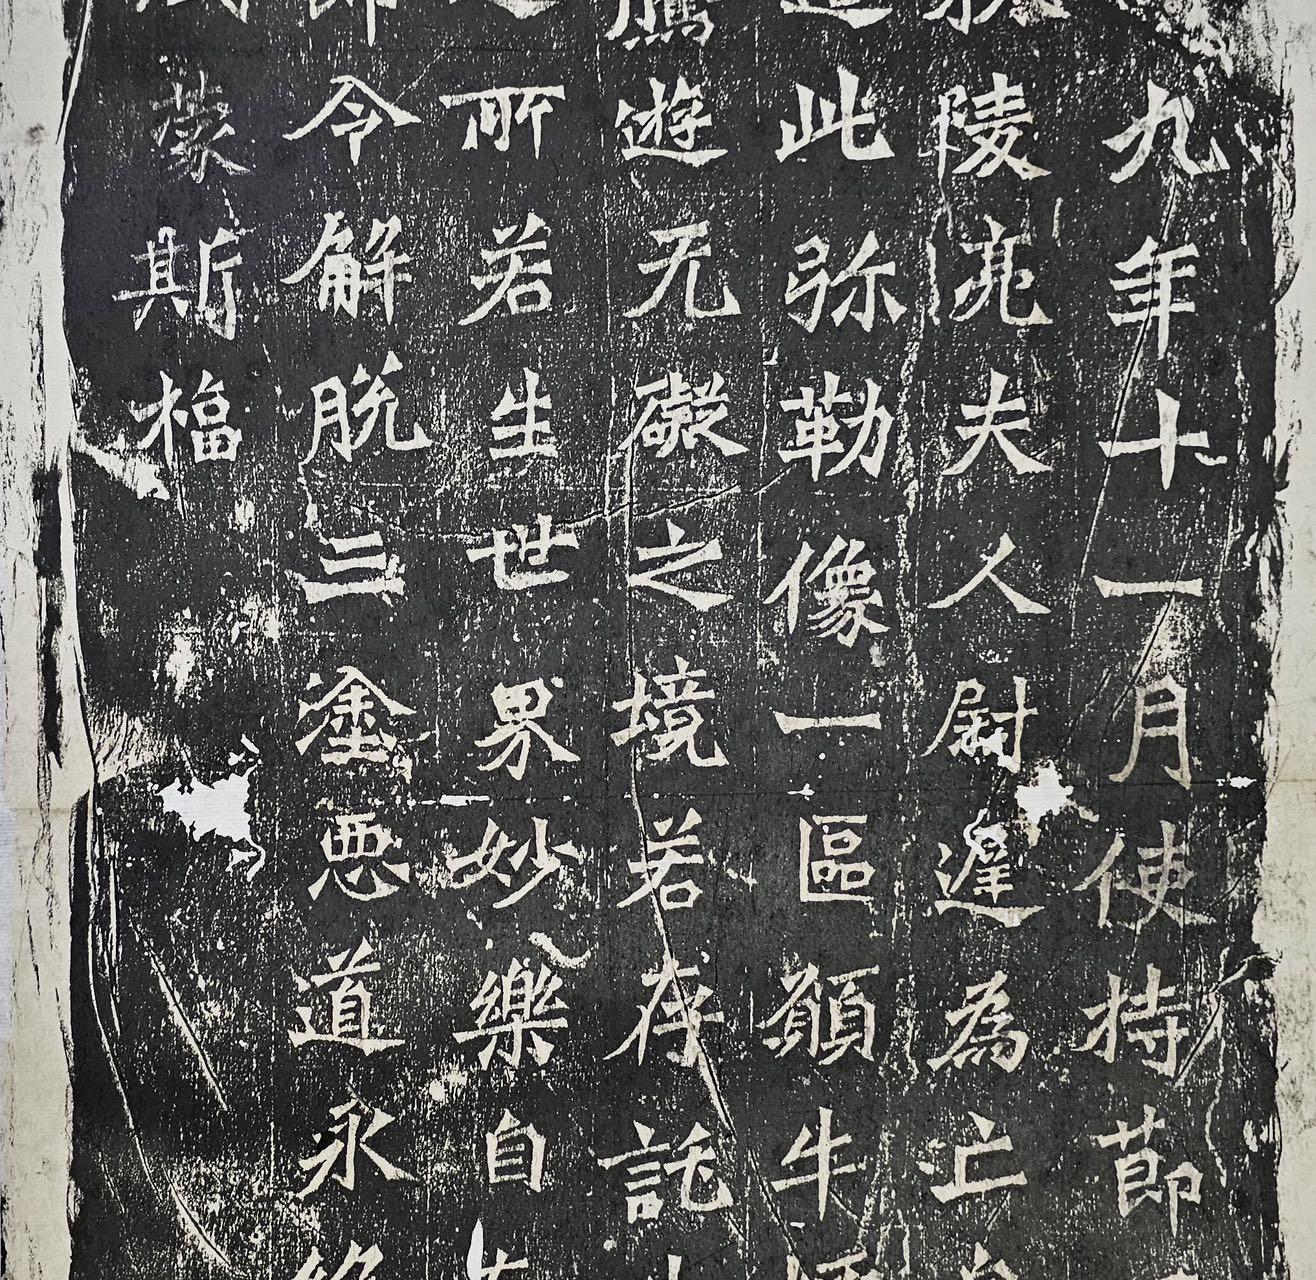 九年十一月使持節
陵亮夫人尉遲為亡
造此弥勒像一區願牛
騰遊无礙之境若存託
之所若生世界妙樂自
即令解脱三塗惡道永絶
咸蒙斯福